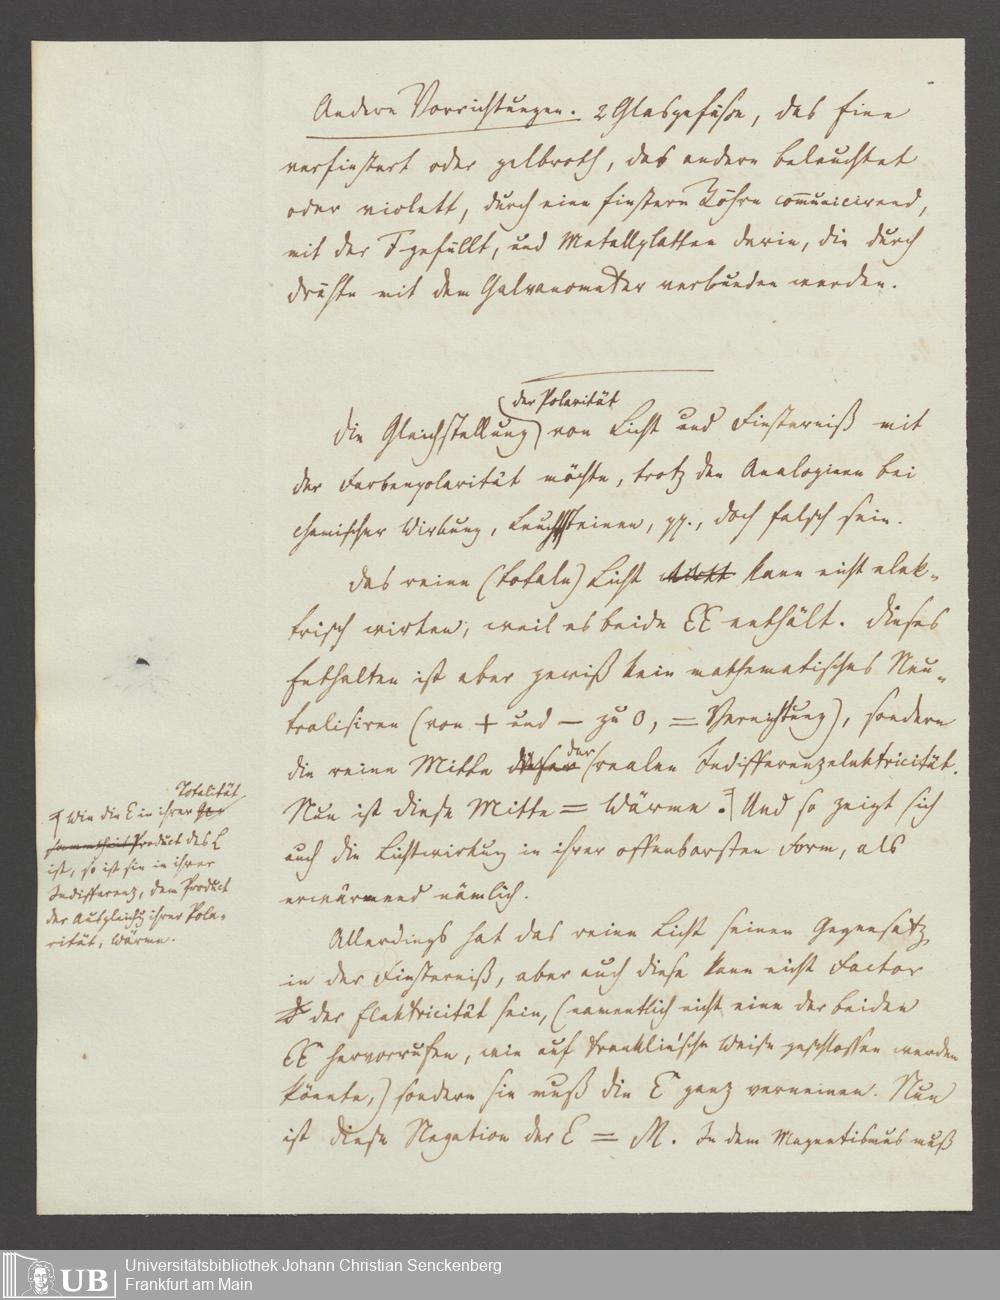 Andere Vorrichtungen. 2 Glasgefäße, das Eine
verfinstert oder gelbroth, das andere beleuchtet
oder violett, durch eine finstere Röhre communicirend,
mit der F gefüllt, und Metallplatten darin, die durch
Drähte mit dem Galvanometer verbunden werden.
der Polarität
Die Gleichstellung von Licht und Finsterniß mit
der Farbenpolarität möchte, trotz den Analogieen bei
chemischer Wirkung, Leuchtsteinen, pp., doch falsch sein.
Das reine (totale) Licht kann nicht elek-
trisch wirken, weil es beide EE enthält. Dieses
Enthalten ist aber gewiß kein mathematisches Neu-
tralisiren (von + und – zu 0, = Vernichtung), sondern
die reine Mitte dieser der (realen Indifferenzelektricität.
Nun ist diese Mitte = Wärme. Und so zeigt sich
auch die Lichtwirkung in ihrer offenbarsten Form, als
erwärmend nämlich.
Totalität
Wie die E in ihrer Ge-
sammtheit Product des L
ist, so ist sie in ihrer
Indifferenz, dem Product
der Ausgleichg ihrer Pola-
rität, Wärme.
Allerdings hat das reine Licht seinen Gegensatz
in der Finsterniß, aber auch diese kann nicht Factor
der Elektricität sein, (namentlich nicht eine der beiden
EE hervorrufen, wie auf Franklin'sche Weise geschlossen werden
könnte,) sondern sie muß die E ganz verneinen. Nun
ist diese Negation der E = M. In dem Magnetismus muß
Universitätsbibliothek Johann Christian Senckenberg
Frankfurt am Main
UB